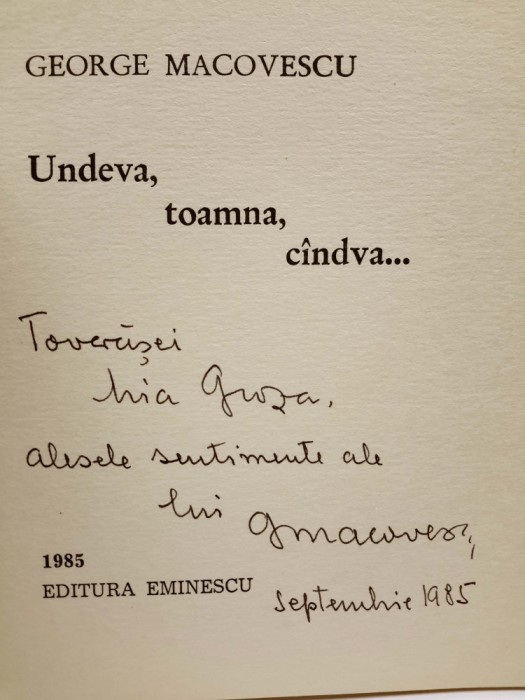 GEORGE MACOVESCU
Undeva,
toamna,
cîndva...
Tovarășei
Mia Groza,
alesele sentimente ale
lui GMacovescu
1985
EDITURA EMINESCU
Septembrie 1985